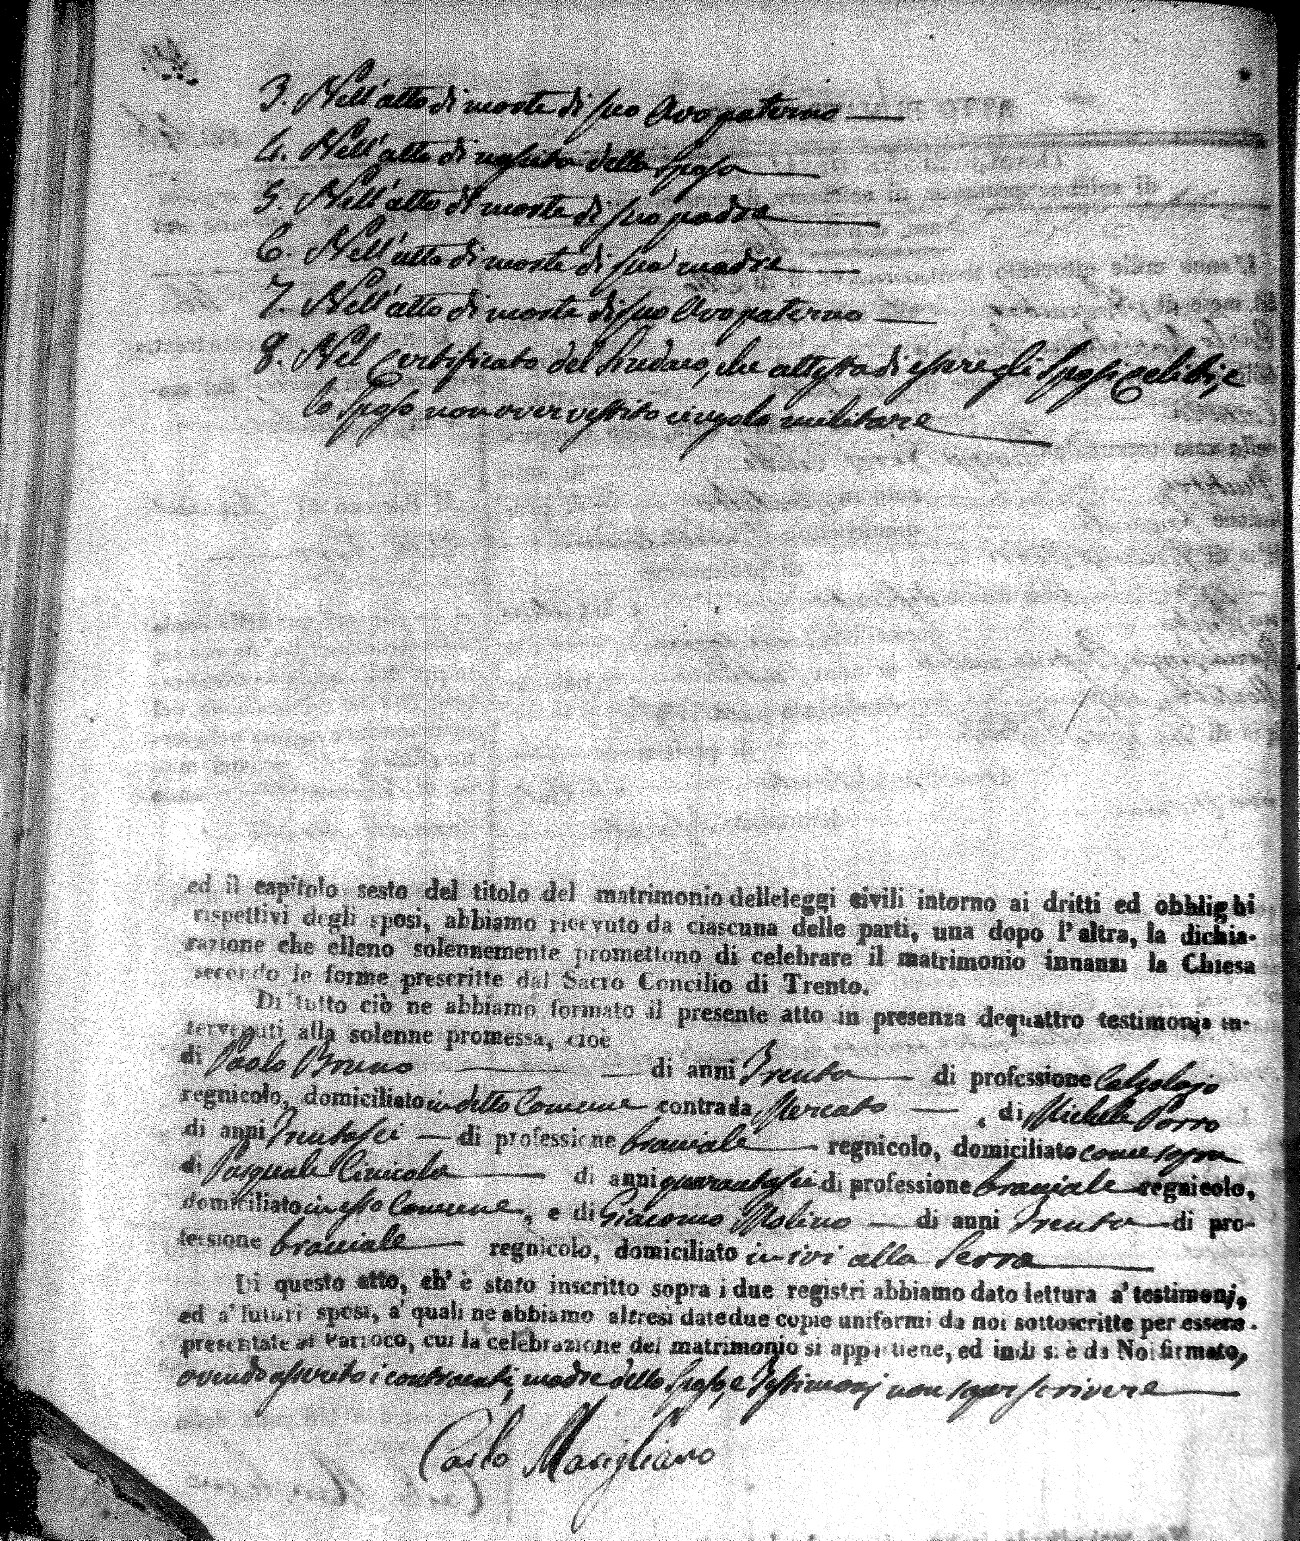 3. Nell'atto di morte di suo Avo paterno
4. Nell'atto di nascita dello Sposo
5. Nell'atto di morte di suo padre
6. Nell'atto di morte di sua madre
7. Nell'atto di morte di suo Avo paterno
8. Nel Certificato del Sindaco, che attesta di essere gli Sposi Celibi, e
lo Sposo non aver vestito cingolo militare
ed il capitolo sesto del titolo del matrimonio delleleggi civili intorno ai dritti ed obblighi
rispettivi degli sposi, abbiamo ricevuto da ciascuna delle parti, una dopo l'altra, la dichia-
razione che elleno solennemente promettono di celebrare il matrimonio innanzi la Chiesa
secondo le forme prescritte dal Sacro Concilio di Trento.
Di tutto ciò ne abbiamo formato il presente atto in presenza dequattro testimonj in-
tervenuti alla solenne promessa, cioè
di Paolo Bruno di anni Trenta di professione Calzolajo
regnicolo, domiciliato in detto Comune contrada Mercato , di Michele Porro
di anni Trentasei di professione bracciale regnicolo, domiciliato come sopra
di Pasquale di anni quarantasei di professione bracciale regnicolo,
domiciliato in esso Comune, e di Giacomo Molino di anni Trenta di pro-
fessione bracciale regnicolo, domiciliato in ivi alla Serra
Di questo atto, ch' è stato inscritto sopra i due registri abbiamo dato lettura a' testimonj,
ed a' futuri sposi, a' quali ne abbiamo altresì datedue copie uniformi da noi sottoscritte per essere
presentate al Parroco, cui la celebrazione del matrimonio si appartiene, ed indi s. è da Noi firmato,
avendo asserito i contraenti, madre dello Sposo, e Testimonj non saper scrivere
Carlo Marigliano